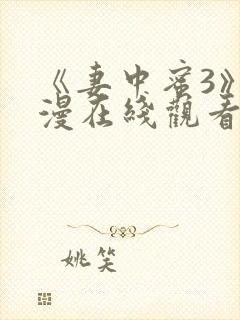 《妻中蜜3》
漫在綫觀看
姚笑